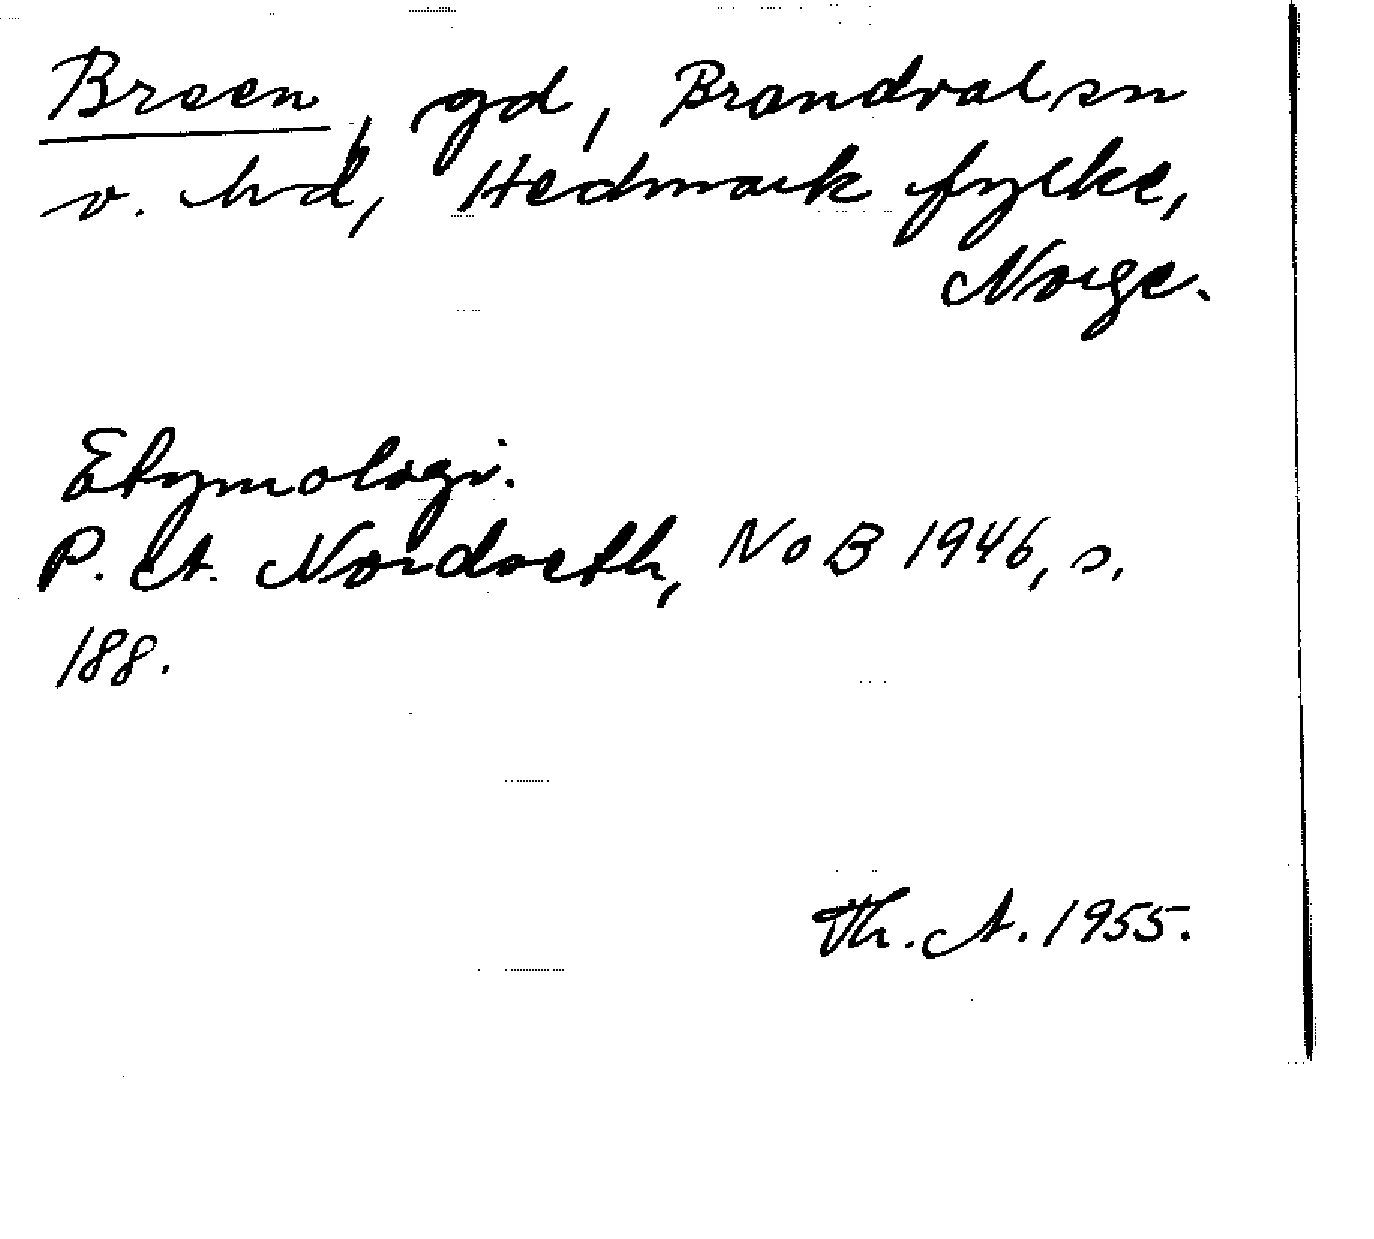 Breen, gd, Brandval sn
o. hd, Hedmark fylke,
Norge.
Etymologi.
P. A. Nordseth, NoB 1946, s.
188.
Th. A. 1955.